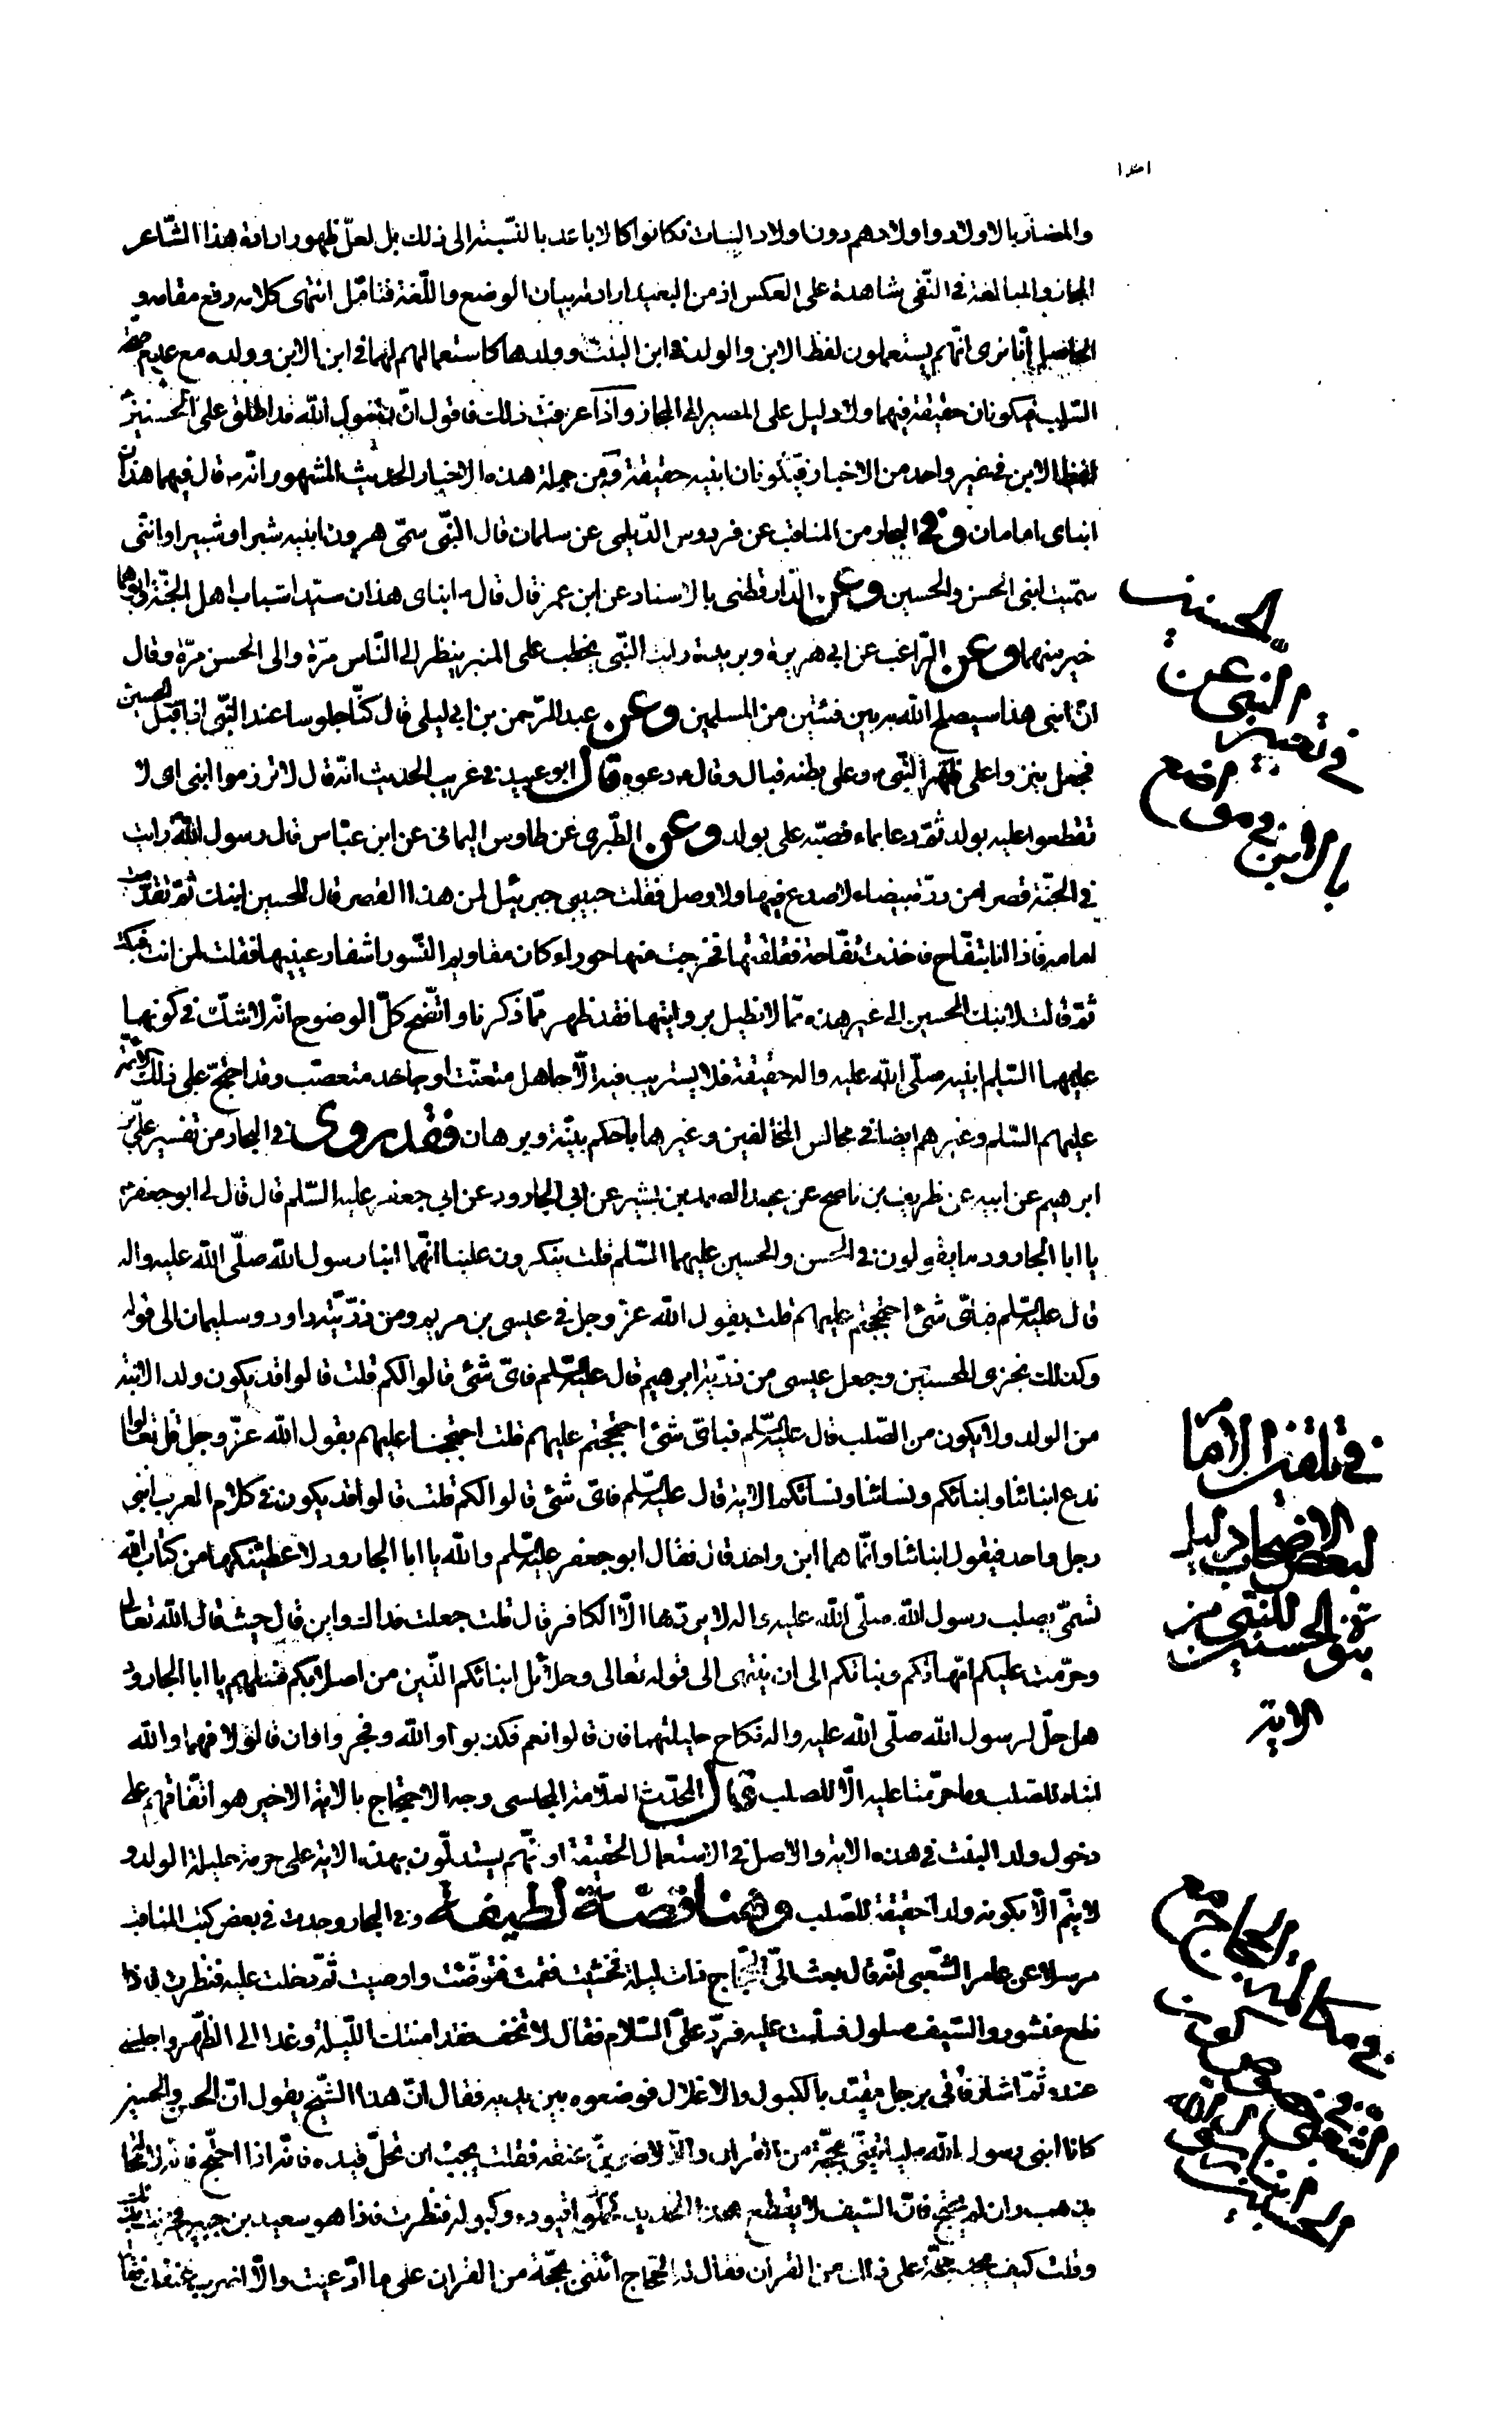 والمضار بالاولاد واولادهم دون اولاد البنات فكانوا كالاباعد بالنسبة الى ذلك بل لعل ظهور ارادة هذا الشاعر
المجاز والمبالغة في النفي شاهدة على العكس اذ من البعيد ارادته بيان الوضع واللغة فتامل انتهى كلامه رفع مقامه و
الحاصل انا نرى انهم يستعملون لفظ الابن والولد في ابن البنت وولدها كاستعمالهم لهما في ابن الابن وولده مع عدم صحة
السلب فيكونان حقيقة فيهما ولا دليل على المصير الى المجاز واذا عرفت ذلك فاقول ان رسول الله قد اطلق على الحسنين
لفظ الابن في غير واحد من الاخبار فيكونان ابنيه حقيقة ومن جملة هذه الاخبار الحديث المشهور انه قال فيهما هذان
ابناى امامان وفي البحار من المناقب عن فردوس الديلمى عن سلمان قال النبى سمى هرون ابنيه شبرا وشبيرا وانى
سميت ابنى الحسن والحسين وعن الدارقطنى بالاسناد عن ابن عمر قال قال ابناى هذان سيدا شباب اهل الجنة وابوهما
خير منهما وعن الراغب عن ابى هريرة وبريدة رايت النبى يخطب على المنبر ينظر الى الناس مرة والى الحسن مرة وقال
ان ابنى هذا سيصلح الله به بين فئتين من المسلمين وعن عبد الرحمن بن ابى ليلى قال كنا جلوسا عند النبى اذ اقبل الحسين
فجعل ينزو على ظهر النبى وعلى بطنه فبال وقال دعوه قال ابو عبيد في غريب الحديث انه قال لا تزرموا ابنى اى لا
تقطعوا عليه بوله ثم دعا بماء فصبه على بوله وعن الطبرى عن طاوس اليمانى عن ابن عباس قال رسول الله رايت
في الجنة قصرا من درة بيضاء لا صدع فيها ولا وصل فقلت حبيبى جبرئيل لمن هذا القصر قال للحسين ابنك ثم تقدمت
امامه فاذا انا بتفاح فاخذت تفاحة ففلقتها فخرجت منها حوراء كان مقاديم النسور اشفار عينيها فقلت لمن انت فبكت
ثم قالت لابنك الحسين الى غير هذه مما لا نطيل بروايتها فقد ظهر مما ذكرنا واتضح كل الوضوح انه لا شك في كونهما
عليهما السلم ابنيه صلى الله عليه واله حقيقة فلا يستريب فيه الا جاهل متعنت او جاحد متعصب وقد احتج على ذلك الائمة
عليهم السلم وغيرهم ايضا في مجالس المخالفين وغيرها باحكم بينة وبرهان فقد روى في البحار من تفسير على بن
ابرهيم عن ابيه عن ظريف بن ناصح عن عبد الصمد بن بشير عن ابى الجارود عن ابى جعفر عليه السلم قال قال لى ابو جعفر
يا ابا الجارود ما يقولون في الحسن والحسين عليهما السلم قلت ينكرون علينا انهما ابنا رسول الله صلى الله عليه واله
قال عليه السلم فباى شئ احتججتم عليهم قلت بقول الله عز وجل في عيسى بن مريم ومن ذريته داود وسليمان الى قوله
وكذلك نجزى المحسنين وجعل عيسى من ذرية ابرهيم قال عليه السلم فاى شئ قالوا لكم قلت قالوا قد يكون ولد الابنة
من الولد ولا يكون من الصلب قال عليه السلم فباى شئ احتججتم عليهم قلت احتججنا عليهم بقول الله عز وجل قل تعالوا
ندع ابنائنا وابنائكم ونسائنا ونسائكم الاية قال عليه السلم فاى شئ قالوا لكم قلت قالوا قد يكون في كلام العرب ابنى
رجل واحد فيقول ابنائنا وانما هما ابن واحد قال فقال ابو جعفر عليه السلم والله يا ابا الجارود لاعطينكها من كتاب الله
تسمى بصلب رسول الله صلى الله عليه واله لا يردها الا الكافر قال قلت جعلت فداك واين قال حيث قال الله تعالى
وحرمت عليكم امهاتكم وبناتكم الى ان ينتهى الى قوله تعالى وحلائل ابنائكم الذين من اصلابكم فسلهم يا ابا الجارود
هل حل لرسول الله صلى الله عليه واله نكاح حليلتهما فان قالوا نعم فكذبوا والله وفجروا وان قالوا لا فهما والله
ابناه للصلب وما حرمتا عليه الا للصلب قال المحدث العلامة المجلسى وجه الاحتجاج بالاية الاخيرة هو اتفاقهم على
دخول ولد البنت في هذه الاية والاصل في الاستعمال الحقيقة او انهم يستدلون بهذه الاية على حرمة حليلة الولد و
لا يتم الا بكونه ولدا حقيقة للصلب وهنا قصة لطيفة وفي البحار وجدت في بعض كتب المناقب
مرسلا عن عامر الشعبى انه قال بعث الى الحجاج ذات ليلة فخشيت فقمت فتوضئت واوصيت ثم دخلت عليه فنظرت فاذا
نطع منشور والسيف مسلول فسلمت عليه فرد على السلام فقال لا تخف فقد امنتك الليلة وغدا الى الظهر واجلسنى
عنده ثم اشار فاتى برجل مقيد بالكبول والاغلال فوضعوه بين يديه فقال ان هذا الشيخ يقول ان الحسن والحسين
كانا ابنى رسول الله لياتينى بحجة من القران والا لاضربن عنقه فقلت يجب ان تحل قيده فانه اذا احتج فانه لا محالة
يذهب وان لم يحتج فان السيف لا يقطع هذا الحديد فحلوا قيوده وكبوله فنظرت فاذا هو سعيد بن جبير فحزنت بذلك
وقلت كيف يجد حجة على ذلك من القران فقال له الحجاج ائتنى بحجة من القران على ما ادعيت والا اضرب عنقك فقال
في تعبير
النبى عن
الحسنين
بالابن في مواضع
في تلقين الامام
لبعض الاصحاب دليل
بنوة الحسنين للنبى من
الاية
في مكالمة الحجاج مع
الشعبى في خصوص كون
الحسنين ابنا رسول الله